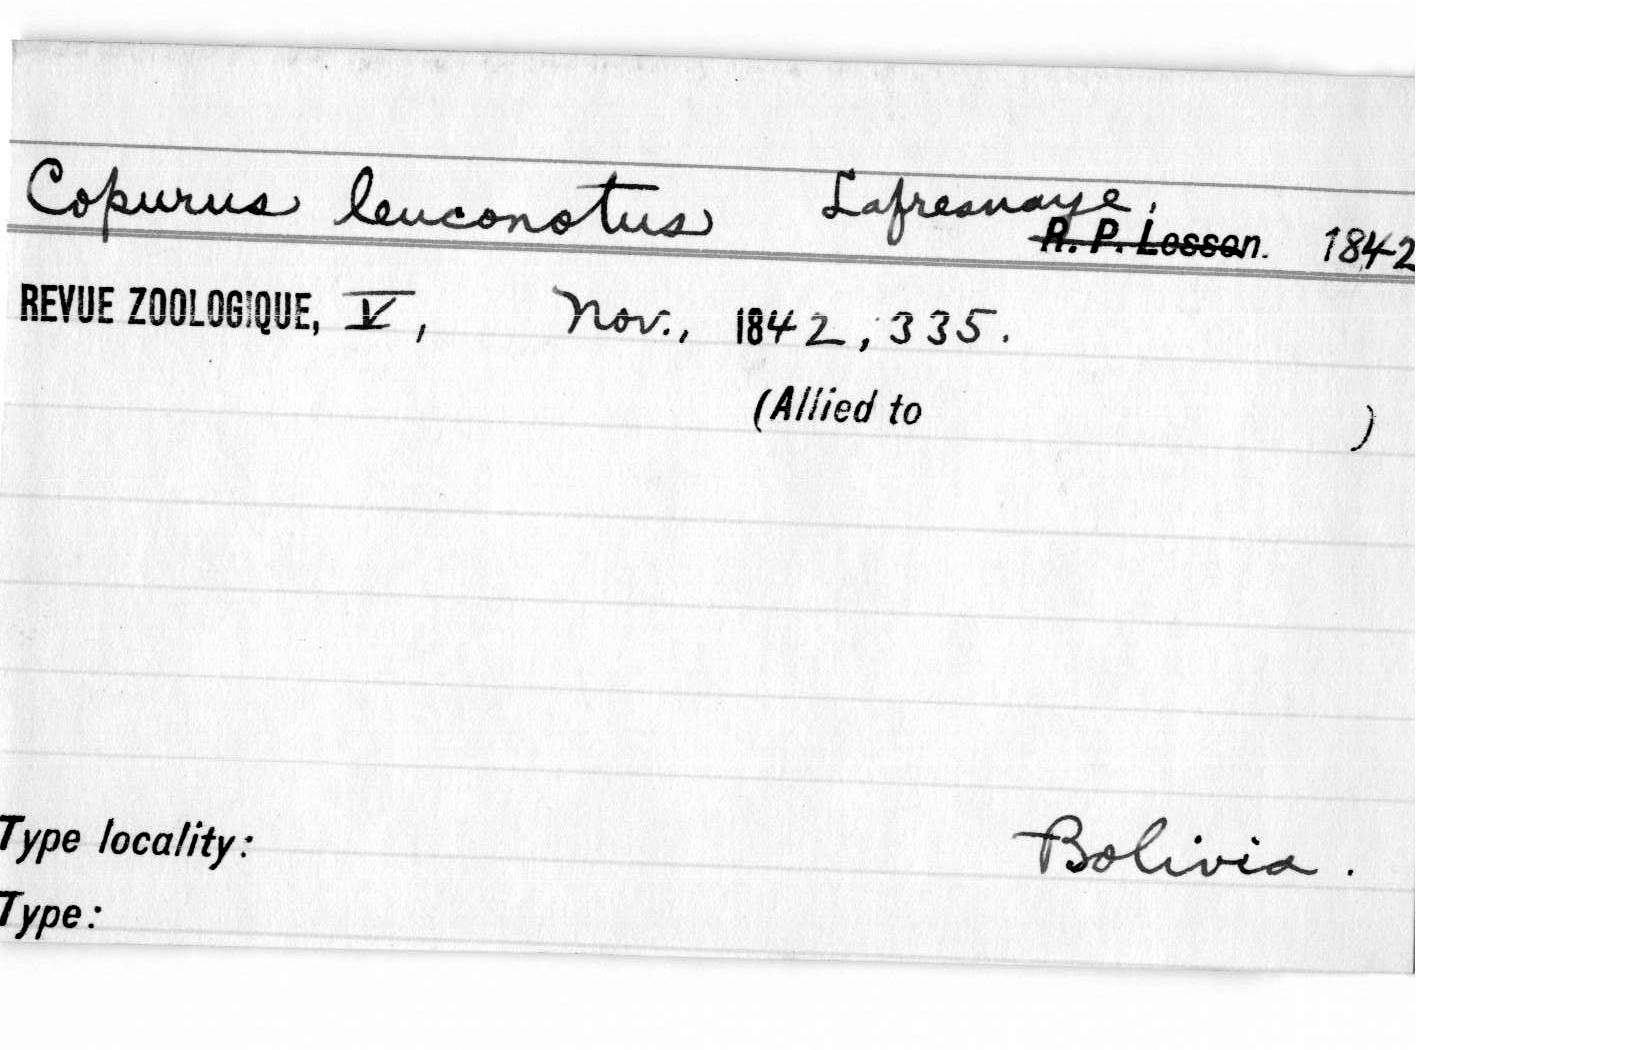 Copurus leuconotus Lafresnaye,
R. P. Lesson. 1842
REVUE ZOOLOGIQUE, V, Nov., 1842, 335.
(Allied to )
Type locality: Bolivia.
Type: